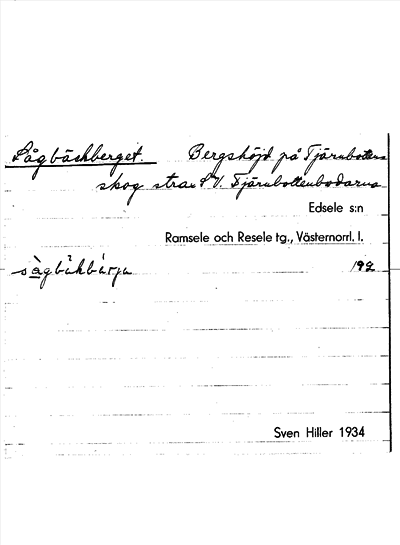 Sågbäckberget. Bergshöjd på Tjärnbottens
skog strax S V. Tjärnbottenbodarna
Edsele s:n
Ramsele och Resele tg., Västernorrl. l.
sàgbäkbàrja 192
Sven Hiller 1934